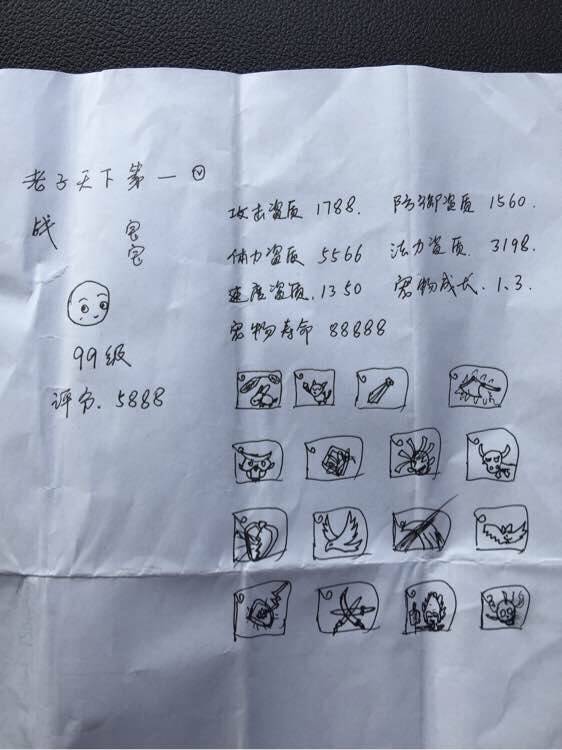 老子天下第一
战 宝宝
99级
评分. 5888
攻击资质 1788. 防御资质 1560.
体力资质 5566 法力资质. 3198.
速度资质. 1350 宠物成长. 1.3.
宠物寿命 88888